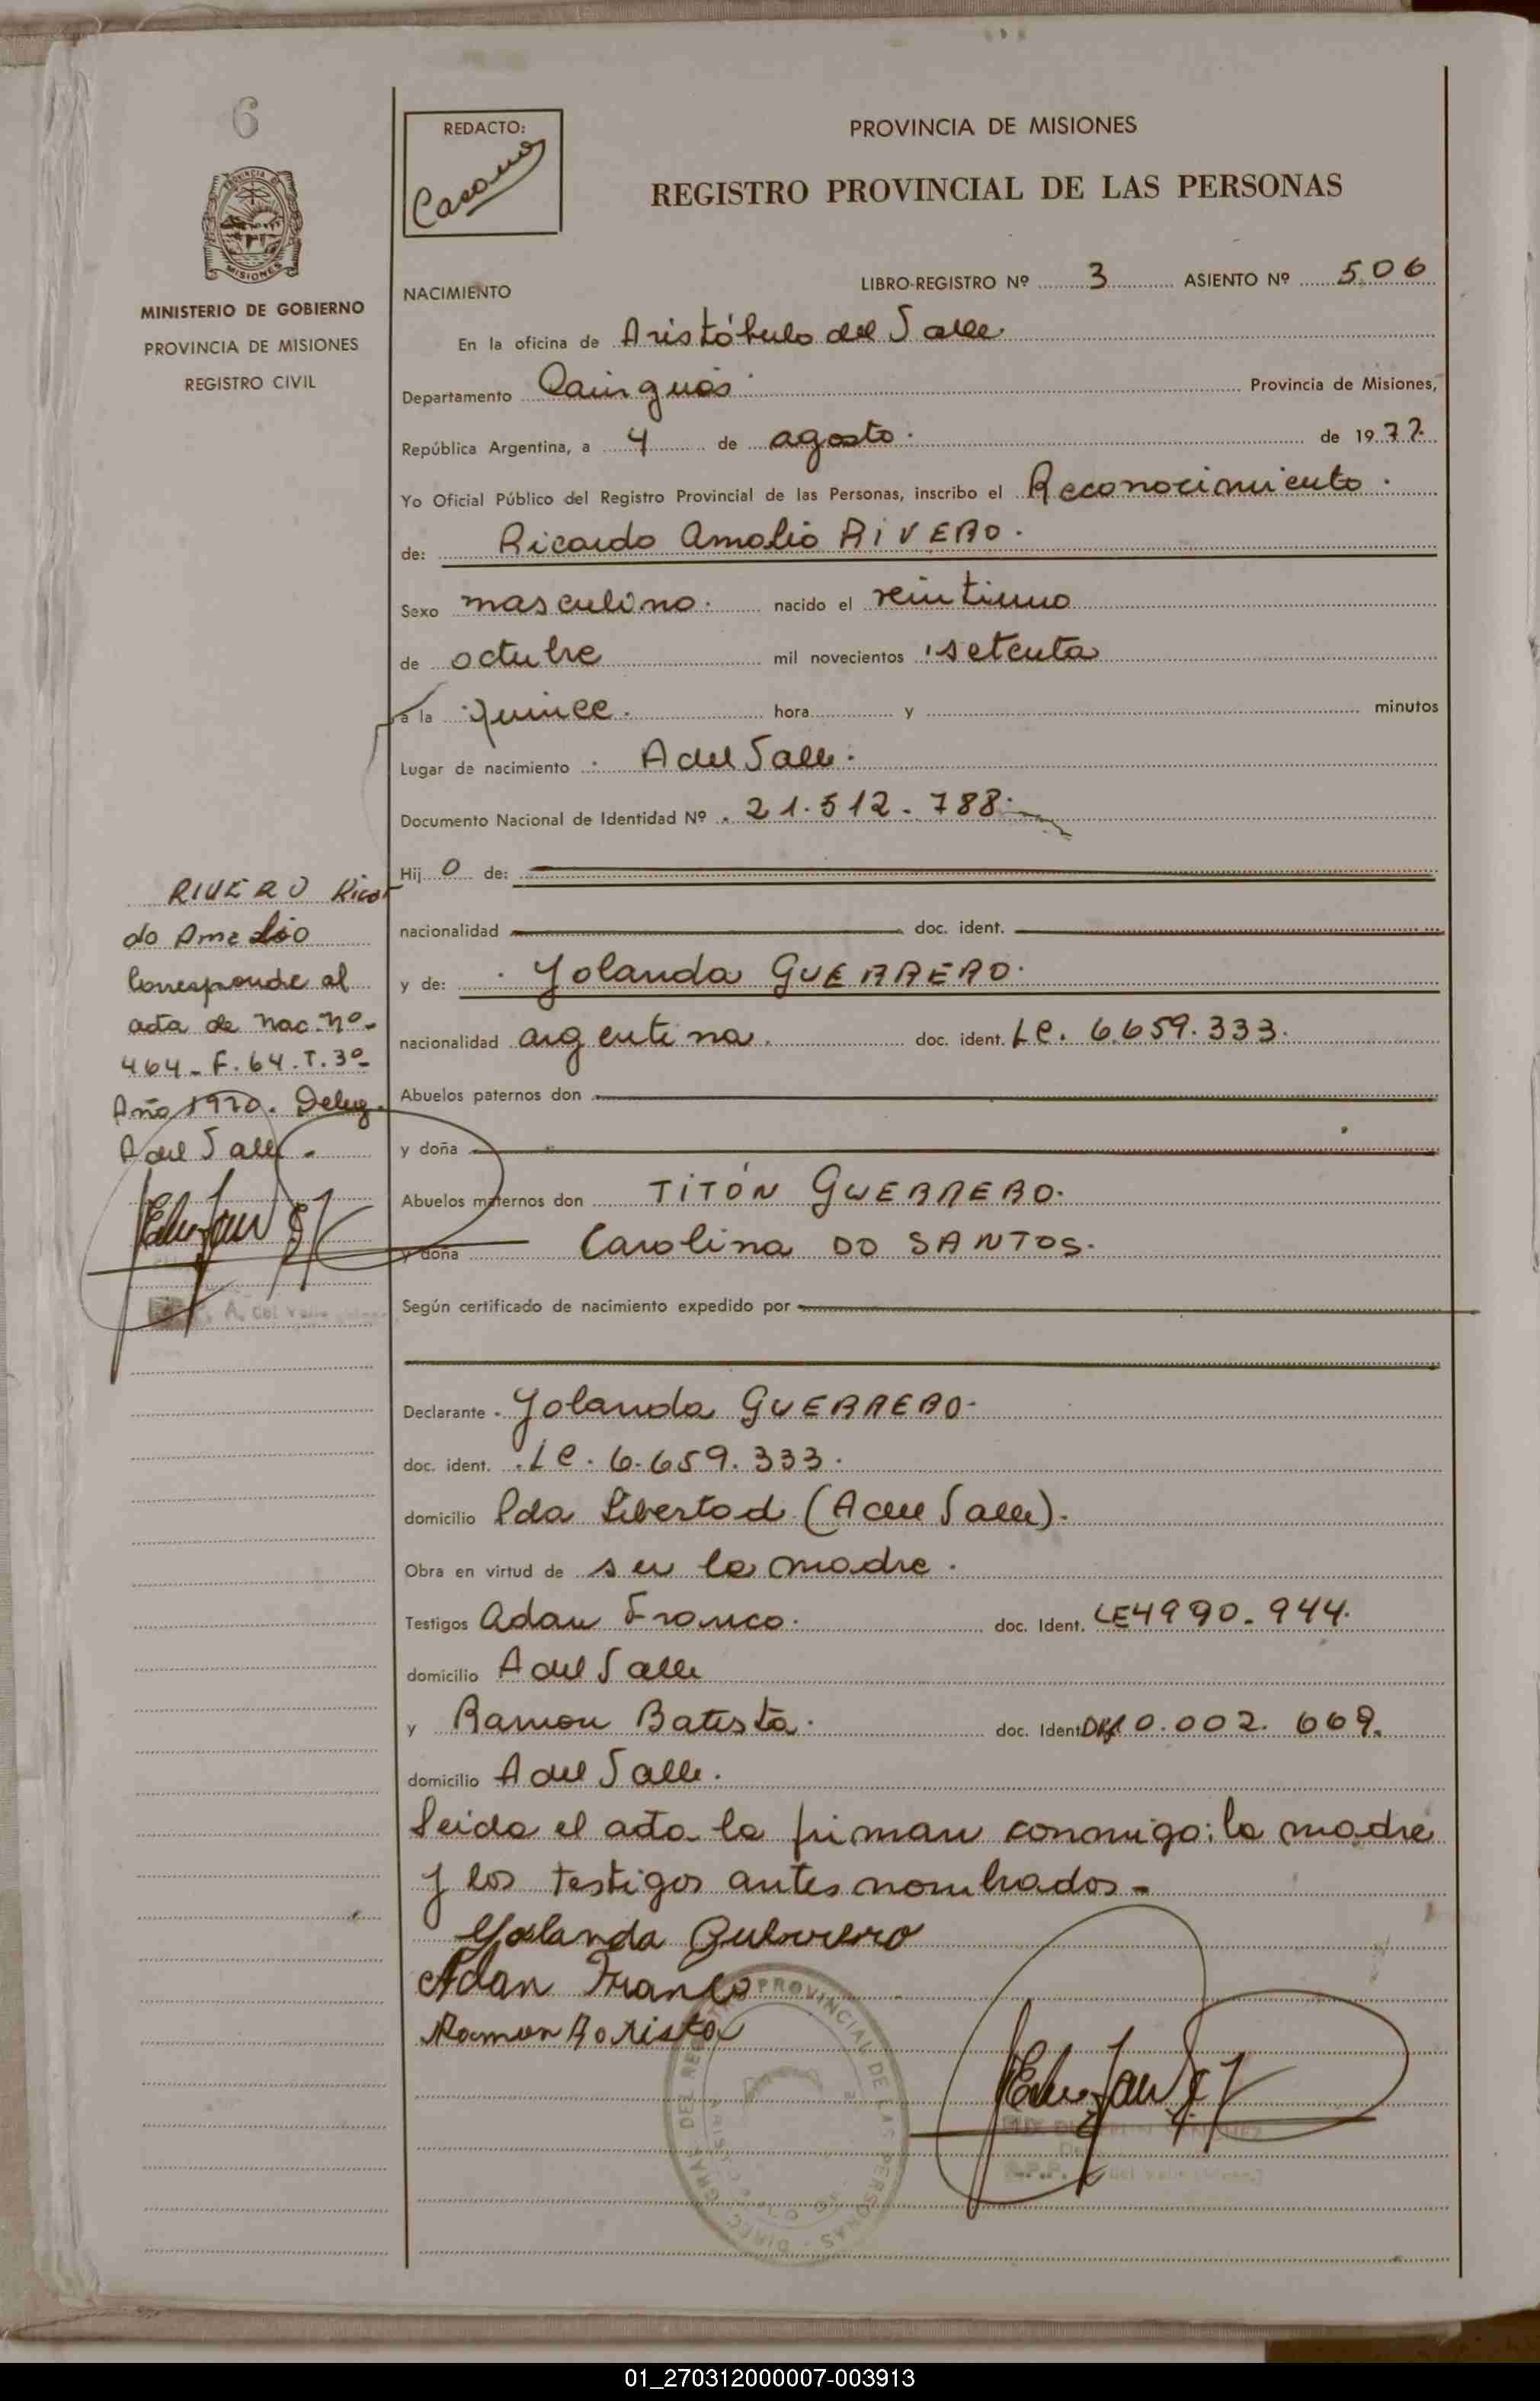 6
REDACTO:
PROVINCIA DE MISIONES
REGISTRO PROVINCIAL DE LAS PERSONAS
PROVINCIA DE
MISIONES
MINISTERIO DE GOBIERNO
PROVINCIA DE MISIONES
REGISTRO CIVIL
NACIMIENTO LIBRO-REGISTRO Nº 3 ASIENTO Nº 506
En la oficina de Aristóbulo del Valle
Departamento Cainguás Provincia de Misiones,
República Argentina, a 4 de agosto. de 1977.
Yo Oficial Público del Registro Provincial de las Personas, inscribo el Reconocimiento.
de: Ricardo Amalio RIVERO.
Sexo masculino. nacido el veintiuno
de octubre mil novecientos setenta
a la quince. hora y minutos
Lugar de nacimiento A del Valle.
Documento Nacional de Identidad Nº 21.512.788.
Hij o de:
nacionalidad doc. ident.
y de: Yolanda GUERRERO.
nacionalidad argentina. doc. ident. LC. 6.659.333.
Abuelos paternos don
y doña
Abuelos maternos don TITÓN GUERRERO.
y doña Carolina DO SANTOS.
Según certificado de nacimiento expedido por
Declarante Yolanda GUERRERO.
doc. ident. LC. 6.659.333.
domicilio Pda Libertad (A del Valle).
Obra en virtud de ser la madre.
Testigos Adan Franco. doc. Ident. LE 4990.944.
domicilio A del Valle
y Ramon Batista. doc. Ident. 0.002.669.
domicilio A del Valle.
Leida el acta la firman conmigo: la madre
y los testigos antes nombrados.-
Yolanda Guerrero
Adan Franco
Ramon Batista
RIVERO Ricar
do Amalio
Corresponde al
acta de Nac. Nº-
464- F. 64. T. 3º-
Año 1970. Deleg.
A del Valle.-
A. del Valle
PROVINCIAL DE LAS PERSONAS
01_270312000007-003913